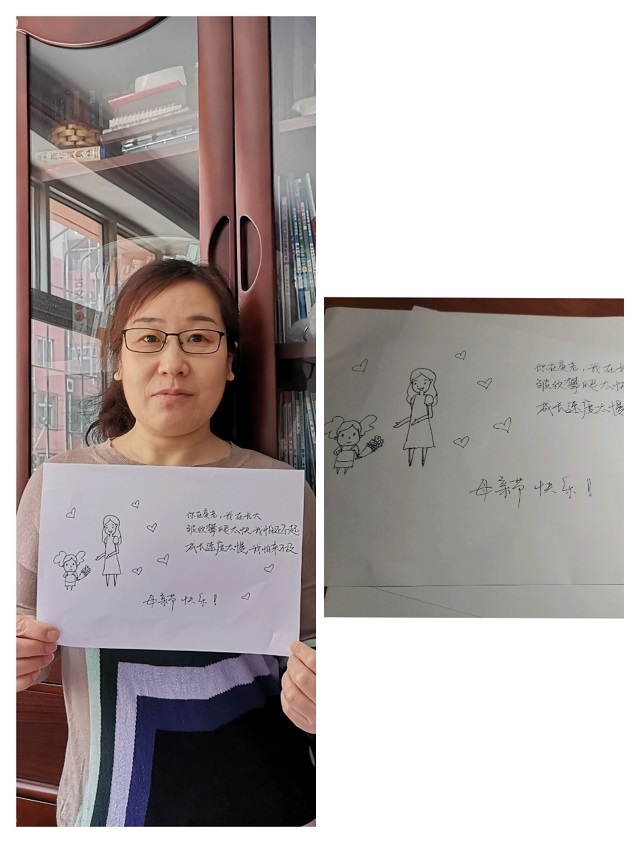 你在变老,我在长大
皱纹攀爬太快,我怕还不起
成长速度太慢,我怕来不及
母亲节 快乐!
你在变老,我在长
皱纹攀爬太快
成长速度太慢
母亲节 快乐!